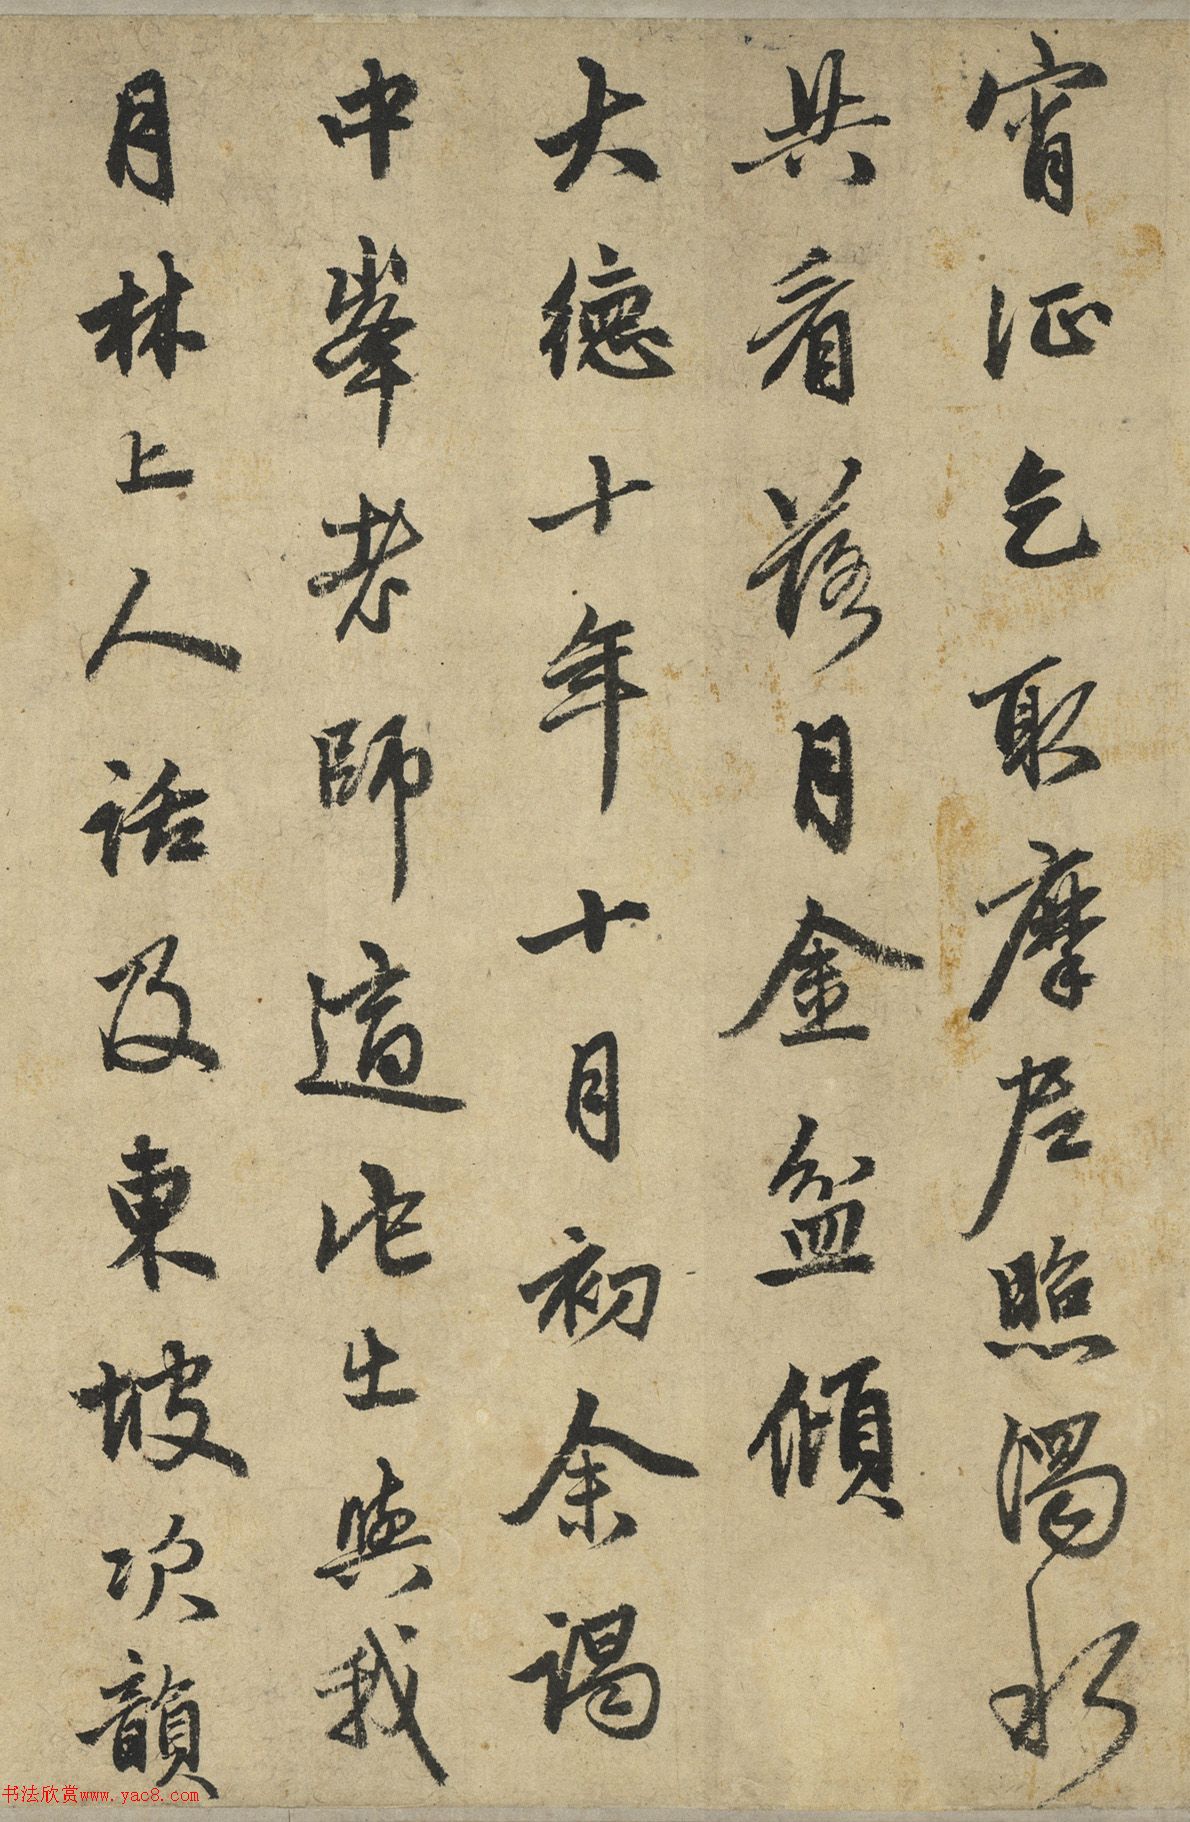 宵征乞取摩尼照濁水
共看落月金盆傾
大德十年十月初余謁
中峯老師道冲出與我
月林上人話及東坡次韻
书法欣赏www.yac8.com